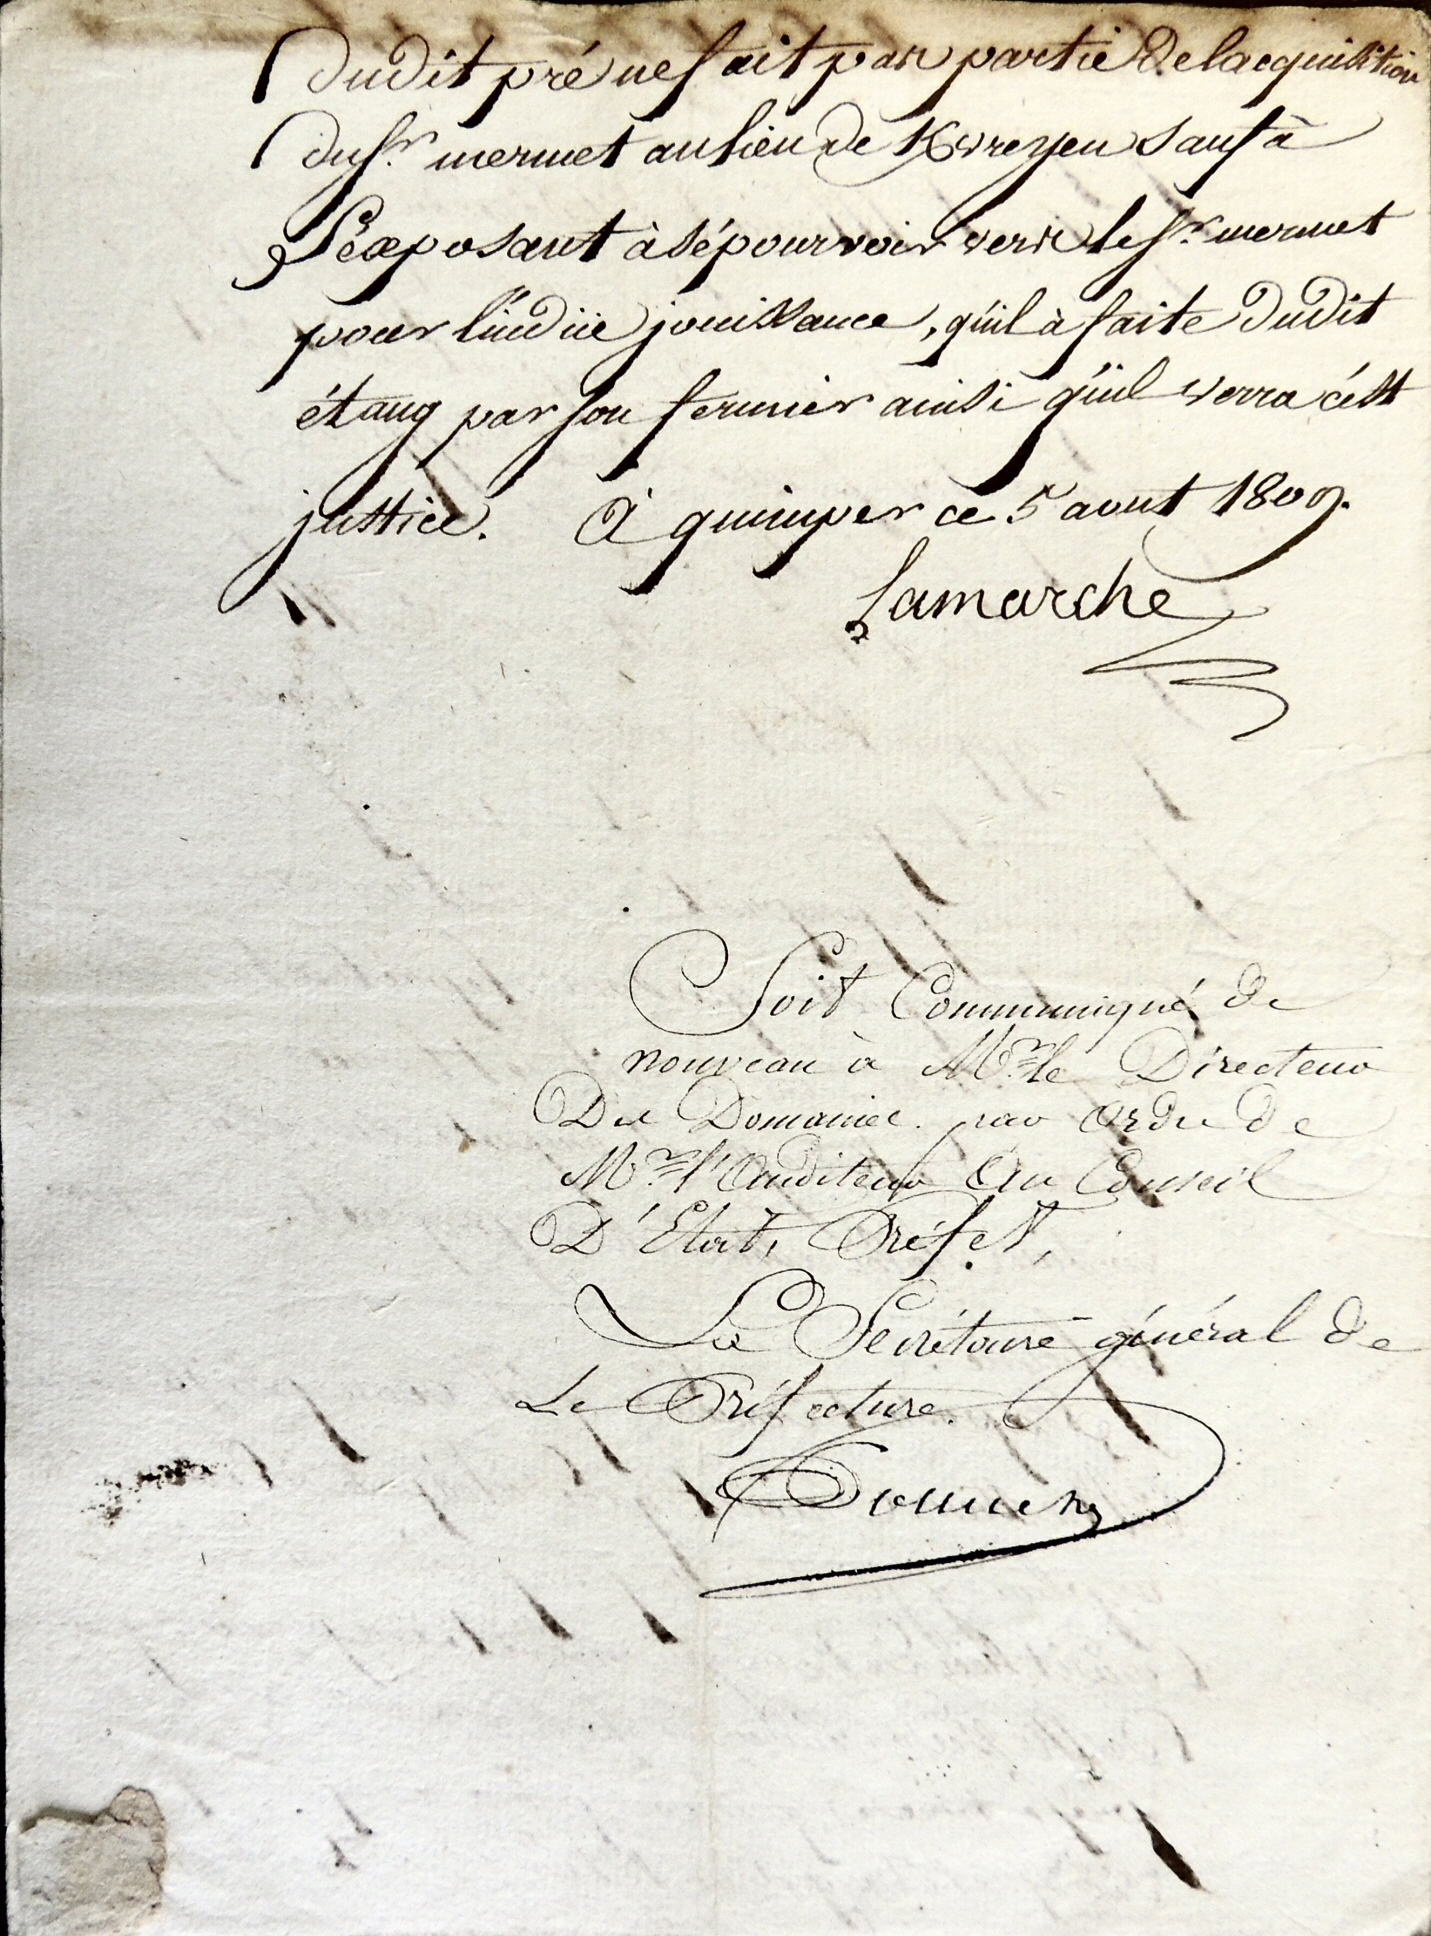 dudit pré ne fait pas partie de lacquisition
du sr. mermet au lieu de Kvreyen sauf à
l'exposant à sé pourvoir vers le sr. mermet
pour l'indüe jouissance, qu'il à faite dudit
étang par son fermier ainsi qu'il verra c'est
justice. À quimper ce 5 aout 1809.
Lamarche
Soit Communiqué de
nouveau à Mr. le Directeur
Des Domaines. par Ordre de
Mr. l'Auditeur Au Conseil
D'Etat, Préfet,
Le Secrétaire général de
La Préfecture.